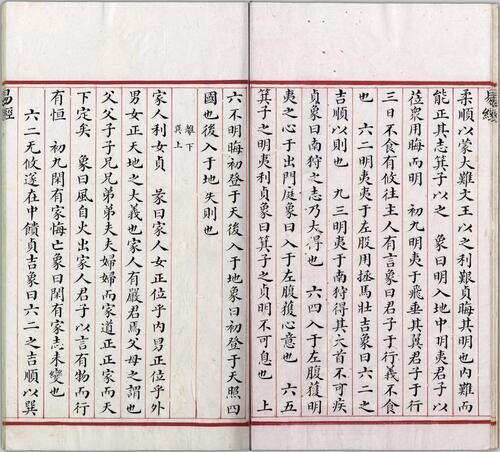 易經
柔順以蒙大難文王以之利艱貞晦其明也內難而
能正其志箕子以之　象曰明入地中明夷君子以
莅衆用晦而明　初九明夷于飛垂其翼君子于行
三日不食有攸往主人有言象曰君子于行義不食
也　六二明夷夷于左股用拯馬壯吉象曰六二之
吉順以則也　九三明夷于南狩得其大首不可疾
貞象曰南狩之志乃大得也　六四入于左腹獲明
夷之心于出門庭象曰入于左腹獲心意也　六五
箕子之明夷利貞象曰箕子之貞明不可息也　上
六不明晦初登于天後入于地象曰初登于天照四
國也後入于地失則也
離下
巽上
家人利女貞　彖曰家人女正位乎內男正位乎外
男女正天地之大義也家人有嚴君焉父母之謂也
父父子子兄兄弟弟夫夫婦婦而家道正正家而天
下定矣　象曰風自火出家人君子以言有物而行
有恒　初九閑有家悔亡象曰閑有家志未變也
六二无攸遂在中饋貞吉象曰六二之吉順以巽
易經